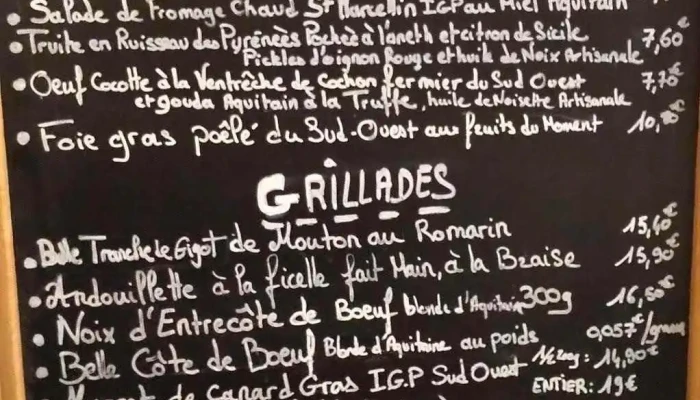 • Salade de Fromage Chaud St Marcellin IGP au Miel Aquitain
• Truite en Ruisseau des Pyrénées Pochée à l'aneth et citron de Sicile 7,60€
Pickles d'oignon Rouge et huile de Noix Artisanale
• Oeuf Cocotte à la Ventrèche de Cochon fermier du Sud Ouest 7,70€
et gouda Aquitain à la Truffe, huile de Noisette Artisanale
• Foie gras poêlé du Sud-Ouest aux fruits du Moment
GRILLADES
• Belle Tranche de Gigot de Mouton au Romarin 15,40€
• Andouillette à la ficelle fait Main, à la Braise 15,90€
• Noix d'Entrecôte de Boeuf blonde d'Aquitaine 300g 16,50€
• Belle Côte de Boeuf Blonde d'Aquitaine au poids 0,057€/gramme
de Canard Gras IGP Sud Ouest 1/2 200g: 14,90€
ENTIER: 19€